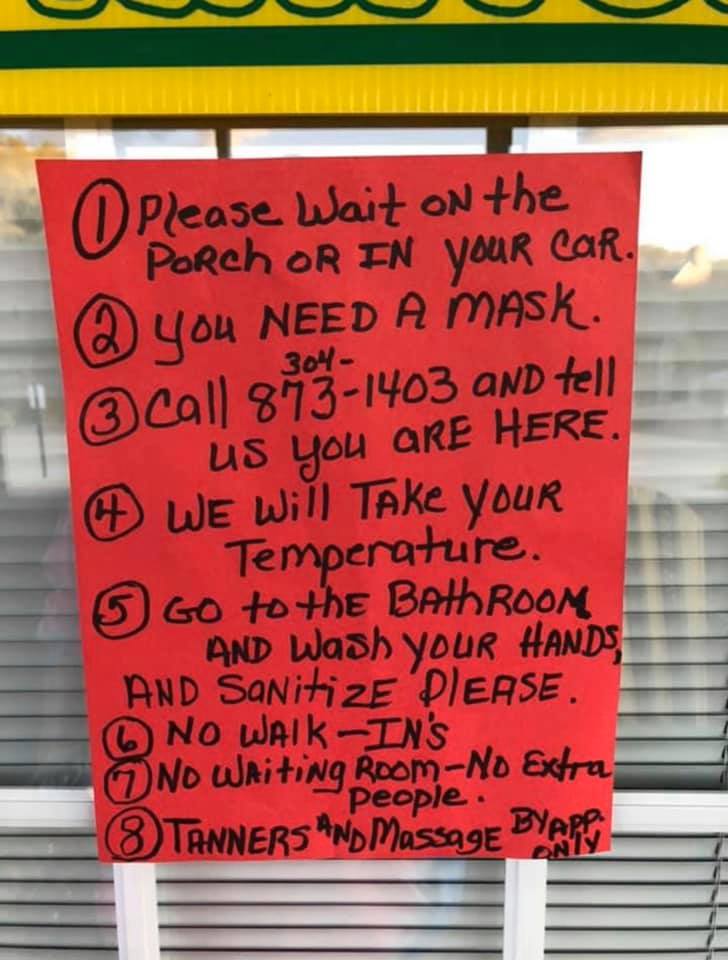 ① Please Wait ON the
PORCh OR IN YOUR CAR.
② YOU NEED A MASK.
304-
③ Call 873-1403 AND tell
us you ARE HERE.
④ WE Will TAKe YOUR
Temperature.
⑤ GO to thE BAthROOM
AND Wash YOUR HANDS,
AND SANitiZE PlEASE.
⑥ NO WAlk-IN'S
⑦ NO WAitiNg ROOM-NO Extra
People.
⑧ TANNERS AND MassagE BY APP. ONlY